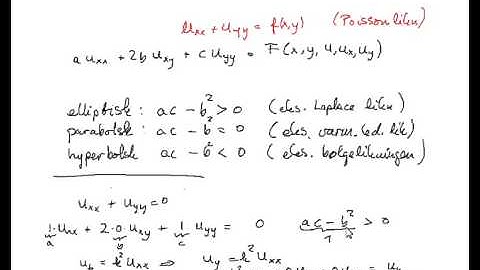 uxx + uyy = f(x,y) (Poisson likn)
a uxx + 2b uxy + c uyy = F(x,y,u,ux,uy)
elliptisk: ac - b² > 0 (eks. Laplace likn)
parabolsk: ac - b² = 0 (eks. varm.led. lik)
hyperbolsk ac - b² < 0 (eks. bølgelikningen)
uxx + uyy = 0
1·uxx + 2·0·uxy + 1·uyy = 0 ac - b² > 0
a b c 1
ut = k² uxx ⇒ uy = k² uxx